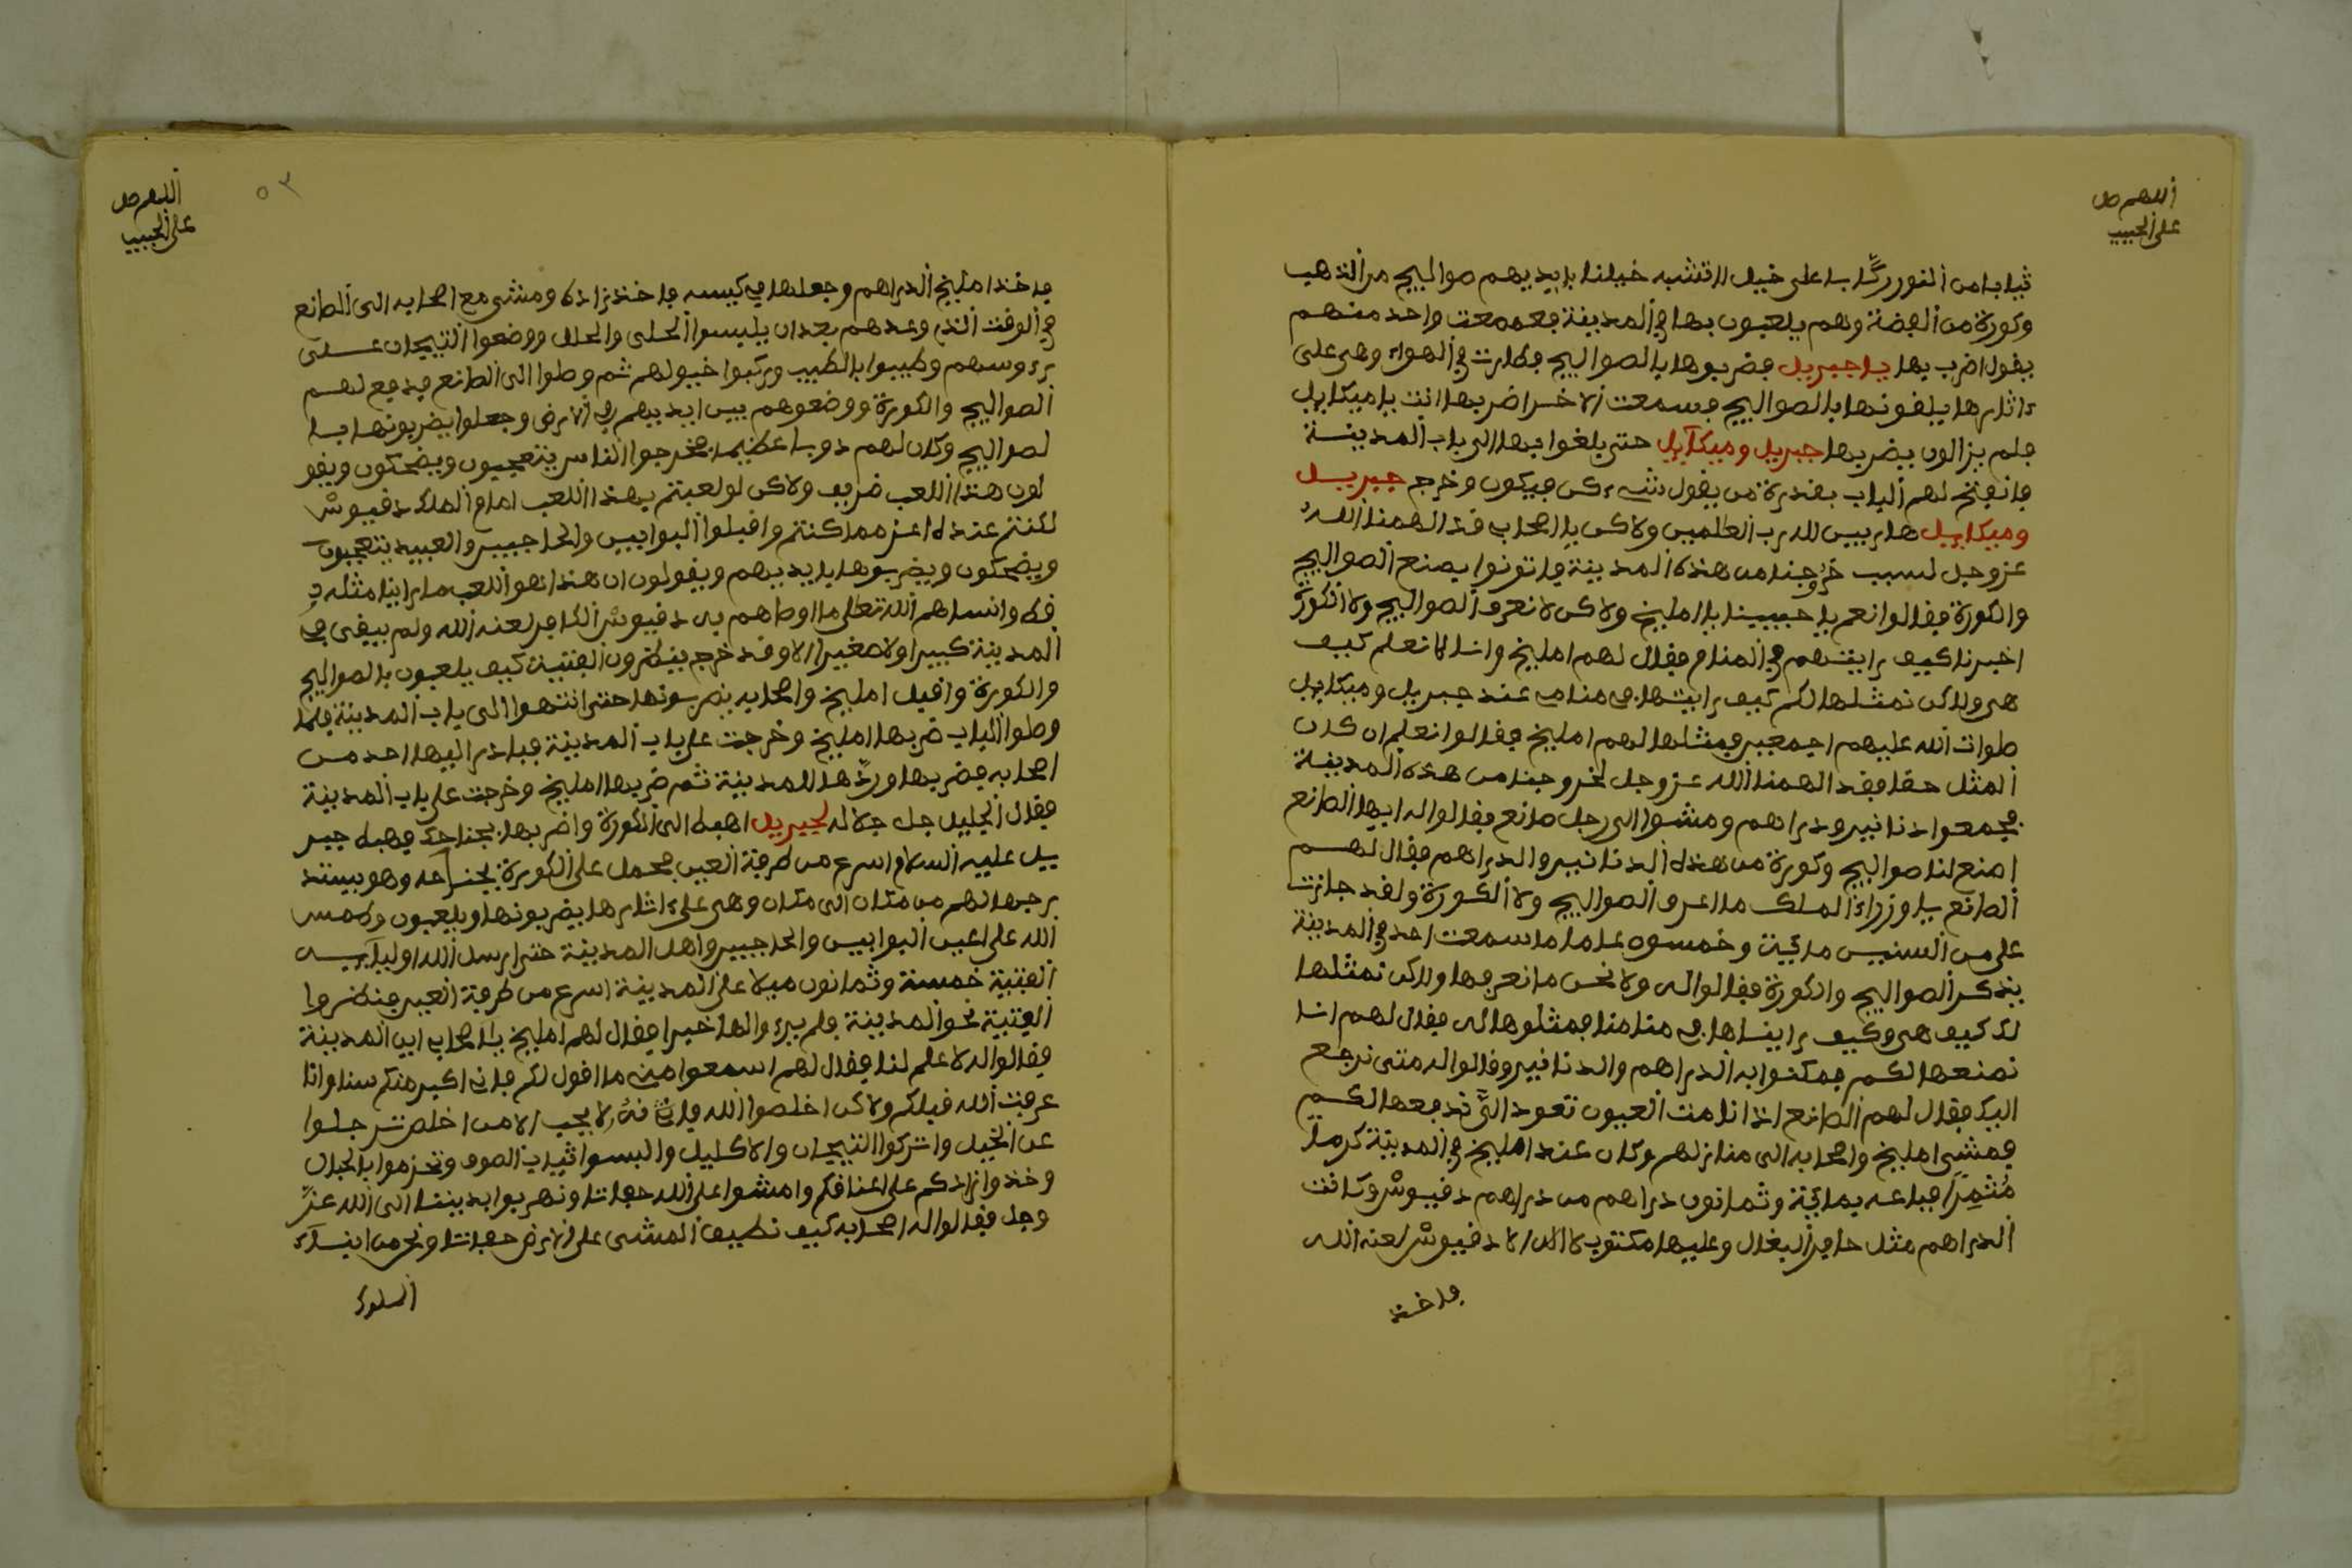 اللهم صل
على الحبيب
ثيابا من النور ركابا على خيل لا تشبه خيلنا بايديهم صوالج من الذهب
وكورة من الفضة وهم يلعبون بها في المدينة فعمعت واحد منهم
يقول اضرب بها يا جبريل فضربوها بالصوالج فطارت في الهواء وهي على
ءاثارها يلقونها بالصوالج فسمعت الاخر اضربها انت يا ميكايل
فلم يزالون يضربها جبريل وميكايل حتى بلغوا بها الى باب المدينة
فانفتح لهم الباب بقدرة من يقول لشيء كن فيكون وخرج جبريل
وميكايل هاربين لله رب العلمين ولاكن يا اصحاب قد الهمنا الله
عز وجل لسبب خروجنا من هذه المدينة فاتونوا بصنع الصوالج
والكورة فقالوا نعم يا حبيبنا يا امليخ ولاكن لا نعرف الصوالج ولا الكورة
اخبرنا كيف رايتهم في المنام فقال لهم امليخ وانا لا نعلم كيف
هي ولاكن نمثلها لكم كيف رايتها في منامي عند جبريل وميكايل
صلوات الله عليهم اجمعين فمثلها لهم امليخ فقالوا نعلم ان كان
المثل حقا فقد الهمنا الله عز وجل لخروجنا من هذه المدينة
فجمعوا دنانير ودراهم ومشوا الى رجل صانع فقالوا له ايها الصانع
اصنع لنا صوالج وكورة من هذه الدنانير والدراهم فقال لهم
الصانع يا وزراء الملك ما اعرف الصوالج ولا الكورة ولقد جازت
علي من السنين مائة وخمسون عاما ما سمعت احد في المدينة
يذكر الصوالج والكورة فقالوا له ولا نحن ما نعرفها ولاكن نمثلها
لك كيف هي وكيف رايناها في منامنا فمثلوها له فقال لهم انا
نصنعها لكم فمكنوا به الدراهم والدنانير وقالوا له متى نرجع
اليك فقال لهم الصانع اذا نامت العيون تعود الي ندفعها لكم
فمشى امليخ واصحابه الى منازلهم وكان عند امليخ في المدينة كرما
مثمرا فباعه بمائة وثمانون دراهم من دراهم دفيوش وكانت
الدراهم مثل حافر البغال وعليها مكتوب لا اله الا دفيوش لعنه الله
فاخذ
اللهم صل
على الحبيب
٥٣
فاخذ امليخ الدراهم وجعلها في كيسه فاخذ زاده ومشى مع اصحابه الى الصانع
في الوقت الذي وعدهم بعد ان يلبسوا الحلي والحلل ووضعوا التيجان على
رءوسهم وطيبوا بالطيب وركبوا خيولهم ثم وصلوا الى الصانع فدفع لهم
الصوالج والكورة ووضعوهم بين ايديهم في الارض وجعلوا يضربونها با
لصوالج وكان لهم دويا عظيما فخرجوا الناس يتعجبون ويضحكون ويقو
لون هذا اللعب ظريف ولاكن لو لعبتم بهذا اللعب امام الملك دفيوش
لكنتم عنده اعز مما كنتم واقبلوا البوابين والحاجبين والعبيد يتعجبون
ويضحكون ويضربوها بايديهم ويقولون ان هذا هو اللعب ما راينا مثله
قط وانساهم الله تعلى ما اوصاهم به دفيوش الكافر لعنه الله ولم يبقى في
المدينة كبيرا ولا صغيرا الا وقد خرج ينظرون الفتية كيف يلعبون بالصوالج
والكورة واقبل امليخ واصحابه يضربونها حتى انتهوا الى باب المدينة فلما
وصلوا الباب ضربها امليخ وخرجت على باب المدينة فبادر اليها احد من
اصحابه فضربها وردها للمدينة ثم ضربها امليخ وخرجت على باب المدينة
فقال الجليل جل جلاله لجبريل اهبط الى الكورة واضربها بجناحك فهبط جبر
يل عليه السلام اسرع من طرفة العين فحمل على الكورة بجناحه وهو يستد
رجها لهم من مكان الى مكان وهي على ءاثارها يضربونها ويلعبون وطمس
الله على اعين البوابين والحاجبين واهل المدينة حتى ارسل الله اوليآءيه
الفتية خمسة وثمانون ميلا على المدينة اسرع من طرفة العين فنظروا
الفتية نحو المدينة فلم يروا لها خبرا فقال لهم امليخ يا اصحاب اين المدينة
فقالوا له لا علم لنا فقال لهم اسمعوا مني ما اقول لكم فاني اكبر منكم سنا وانا
عرفت الله قبلكم ولاكن اخلصوا لله فانه لا يجيب الا من اخلص ترجلوا
عن الخيل واتركوا التيجان والاكليل والبسوا ثياب الصوف وتحزموا بالحبال
وخذوا زادكم على اعناقكم وامشوا على الله حفاتا ونهربوا بديننا الى الله عز
وجل فقالوا له اصحابه كيف نطيق المشي على الارض حفاتا ونحن ابنآء
الملوك